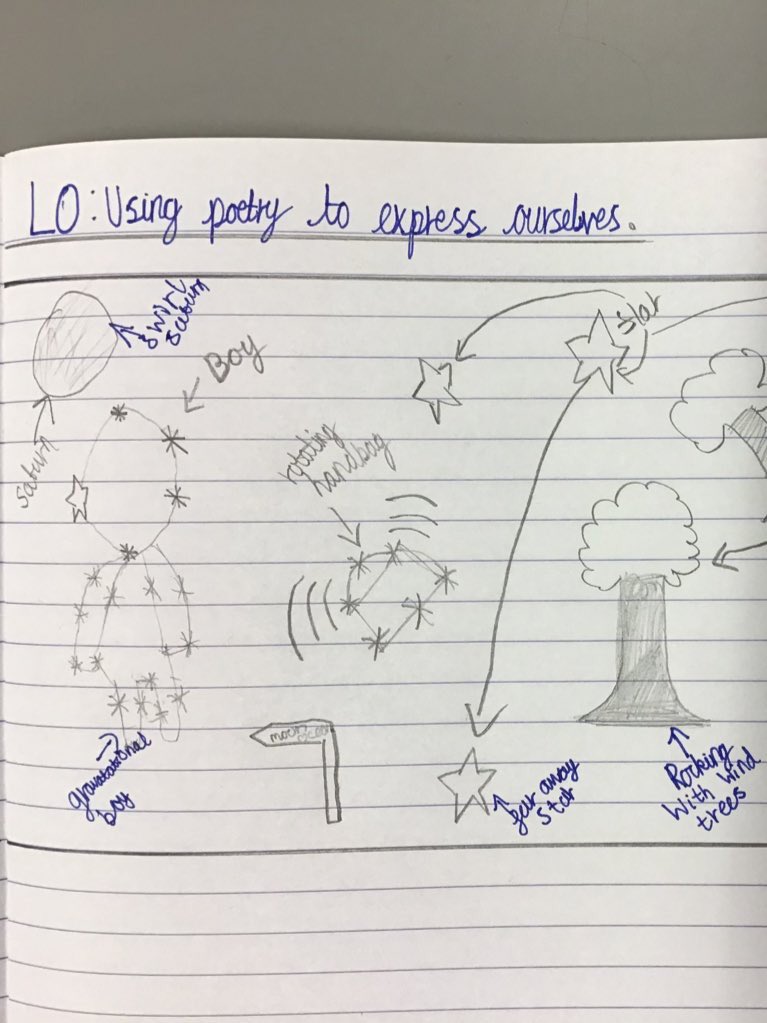 LO: Using poetry to express ourselves.
swirl
saturn
saturn
Boy
star
rotating
handbag
gravitational
boy
moon
far away
star
Rocking
With wind
trees